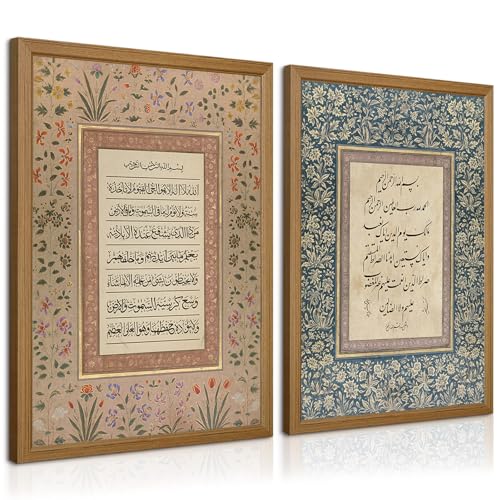 بسم الله الرحمن الرحيم
الله لا اله الا هو الحي القيوم لا تاخذه
سنة ولا نوم له ما في السموت وما في الارض
من ذا الذي يشفع عنده الا باذنه
يعلم ما بين ايديهم وما خلفهم
ولا يحيطون بشيء من علمه الا بما شاء
وسع كرسيه السموت والارض
ولا يوده حفظهما وهو العلي العظيم
بسم الله الرحمن الرحيم
الحمد لله رب العالمين الرحمن الرحيم
مالك يوم الدين اياك نعبد
واياك نستعين اهدنا الصراط المستقيم
صراط الذين انعمت عليهم غير المغضوب
عليهم ولا الضالين